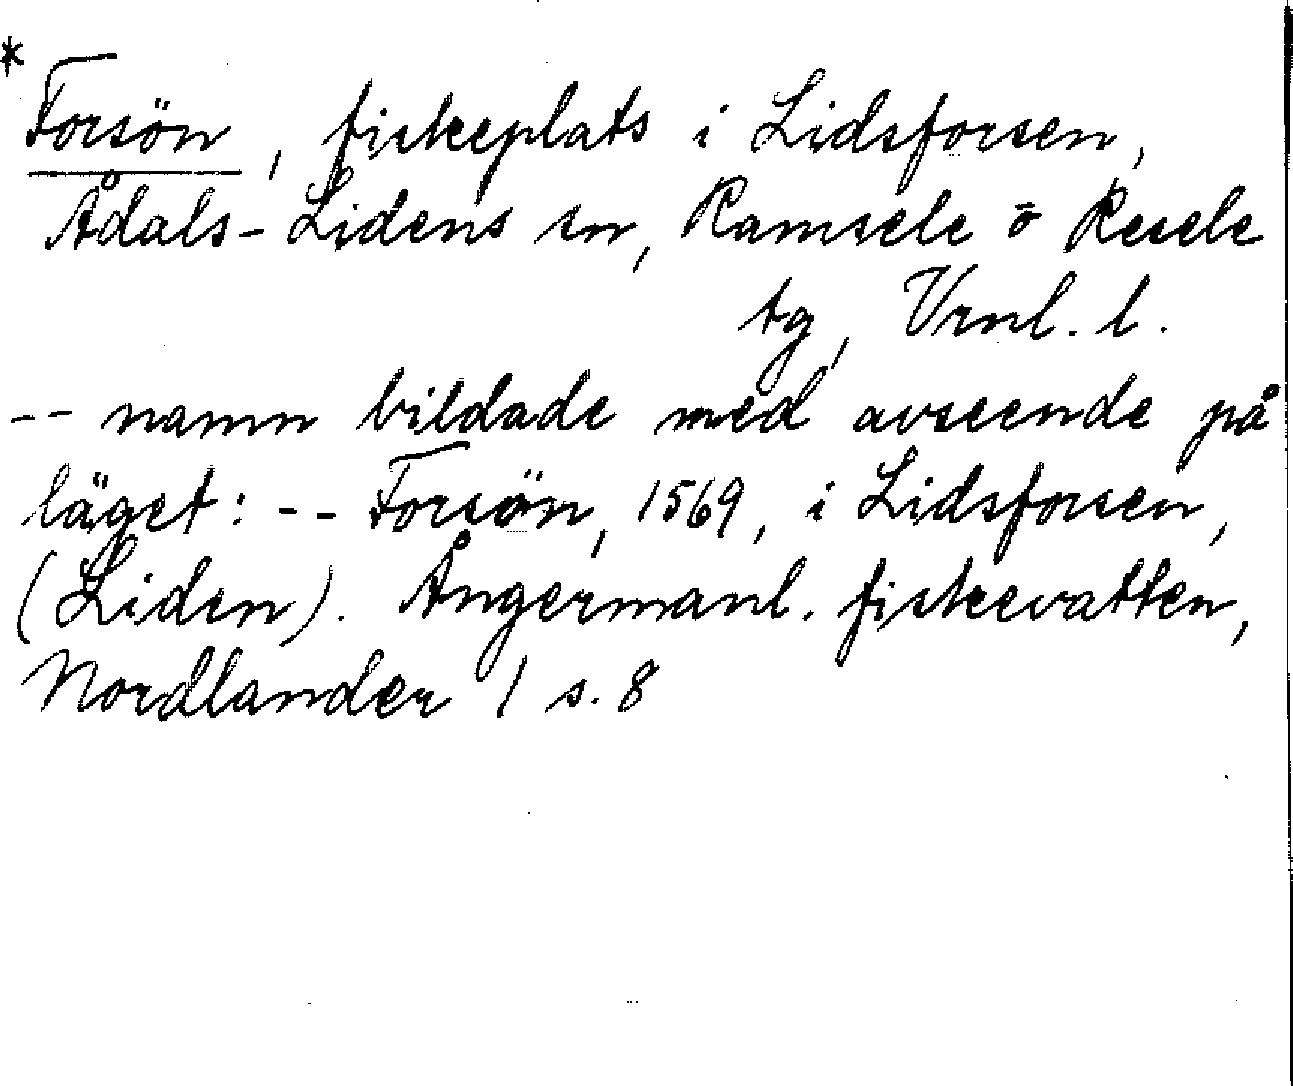 *
Forsön, fiskeplats i Lidsforsen,
Ådals-Lidens sn, Ramsele o Resele
tg, Vrnl. l.
-- namn bildade med avseende på
läget: -- Forsön, 1569, i Lidsforsen,
(Liden). Ångermanl. fiskevatten,
Nordlander 1 s. 8